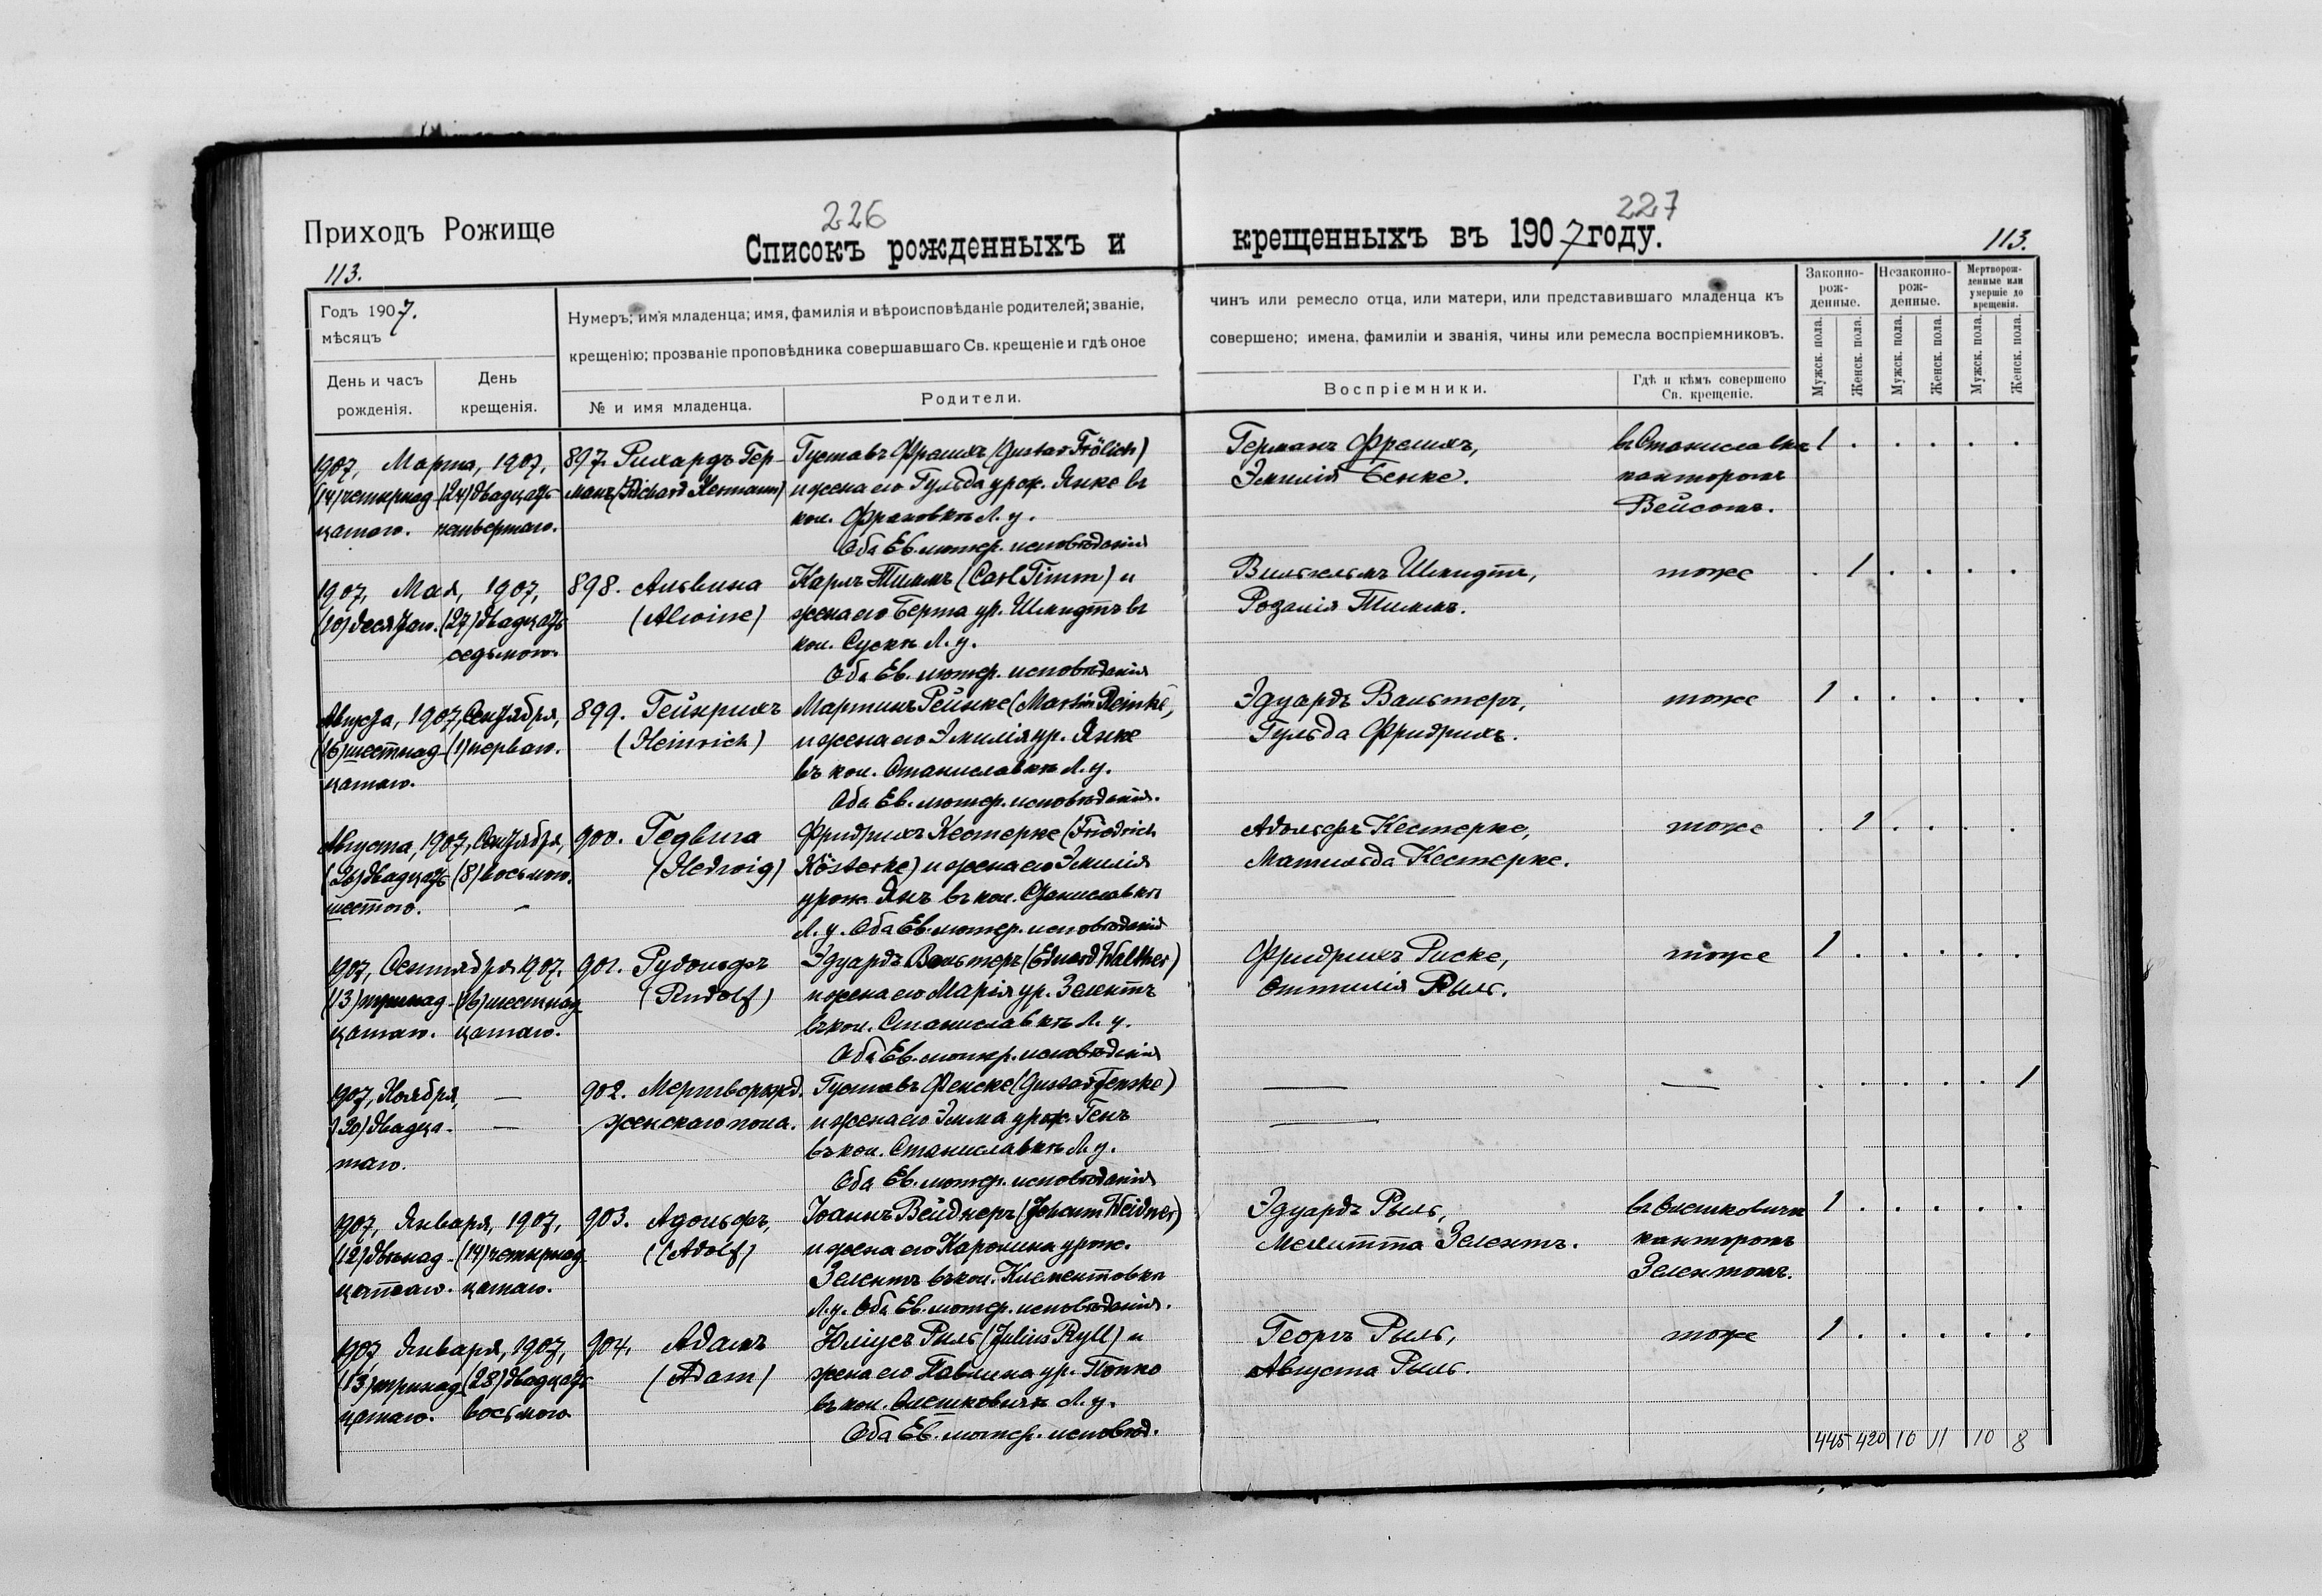 226
227
Приходъ Рожище
Списокъ рожденныхъ и
крещенныхъ въ 1907 году.
113.
113.
Годъ 1907.
мѣсяцъ
Нумеръ; имя младенца; имя, фамилія и вѣроисповѣданіе родителей; званіе,
крещенію; прозваніе проповѣдника совершавшаго Св. крещеніе и гдѣ оное
День и часъ рожденія.
День крещенія.
№ и имя младенца.
Родители.
чинъ или ремесло отца, или матери, или представившаго младенца къ
совершено; имена, фамиліи и званія, чины или ремесла воспріемниковъ.
Воспріемники.
Гдѣ и кѣмъ совершено
Св. крещеніе.
Законно-
рож-
денные.
Незаконно-
рож-
денные.
Мертворож-
денные или
умершіе до
крещенія.
Мужск. пола.
Женск. пола.
Мужск. пола.
Женск. пола.
Мужск. пола.
Женск. пола.
1907, Марта, 1907,
(14) четырнад-
цатаго.
(24) двадцать
четвертаго.
897. Рихардъ Гер-
манъ (Richard Hermann)
Густавъ Фрелихъ (Gustav Frölich)
и жена его Гульда урож. Янке въ
кол. Франовкѣ Л. у.
Оба Ев. лютер. исповѣданія
Германъ Фрелихъ,
Эмилія Бенке.
въ Станиславкѣ
канторомъ
Вейсомъ.
1 . . . . .
1907, Мая, 1907,
(10) десятаго.
(27) двадцать
седьмого.
898. Альвина
(Alwine)
Карлъ Тиммъ (Carl Timm) и
жена его Берта ур. Шмидтъ въ
кол. Сускѣ Л. у.
Оба Ев. лютер. исповѣданія
Вильгельмъ Шмидтъ,
Розалія Тиммъ.
тоже
. 1 . . . .
Августа, 1907, Сентября,
(16) шестнад-
цатаго.
(1) перваго.
899. Гейнрихъ
(Heinrich)
Мартинъ Рейнке (Martin Reinke,
и жена его Эмилія ур. Янке
въ кол. Станиславкѣ Л. у.
Оба Ев. лютер. исповѣданія.
Эдуардъ Вальтеръ,
Гульда Фридрихъ.
тоже
1 . . . . .
Августа, 1907, Сентября,
(26) двадцать
шестого.
(8) восьмого.
900. Гедвига
(Hedwig)
Фридрихъ Кестерке (Friedrich
Kösterke) и жена его Эмилія
урож. Янъ въ кол. Станиславкѣ
Л. у. Оба Ев. лютер. исповѣданія
Адольфъ Кестерке,
Матильда Кестерке.
тоже
. 1 . . . .
1907, Сентября 1907.
(13) тринад-
цатаго.
(16) шестнад-
цатаго.
901. Рудольфъ
(Rudolf)
Эдуардъ Вальтеръ (Eduard Walther)
и жена его Марія ур. Зелентъ
въ кол. Станиславкѣ Л. у.
Оба Ев. лютер. исповѣданія
Фридрихъ Риске,
Оттилія Рыль.
тоже
1 . . . . .
1907, Ноября,
(20) двадца-
таго.
—
—
902. Мертворожд.
женскаго пола.
Густавъ Фенске (Gustav Fenske)
и жена его Эмма урож. Генъ
въ кол. Станиславкѣ Л. у.
Оба Ев. лютер. исповѣданія
—
—
—
. . . . . 1
1907, Января, 1907,
(12) двѣнад-
цатаго.
(14) четырнад-
цатаго.
903. Адольфъ,
(Adolf)
Іоаннъ Вейднеръ (Johann Weidner)
и жена его Каролина урож.
Зелентъ въ кол. Клементовкѣ
Л. у. Оба Ев. лютер. исповѣданія.
Эдуардъ Рыль,
Мелитта Зелентъ.
въ Олешковичѣ
канторомъ
Зелентомъ.
1 . . . . .
1907, Января, 1907,
(13) тринад-
цатаго.
(28) двадцать
восьмого
904. Адамъ
(Adam)
Юліусъ Рыль (Julius Ryll) и
жена его Павлина ур. Попко
въ кол. Олешковичѣ Л. у.
Оба Ев. лютер. исповѣд.
Георгъ Рыль,
Августа Рыль.
тоже
1 . . . . .
445 420 10 11 10 8